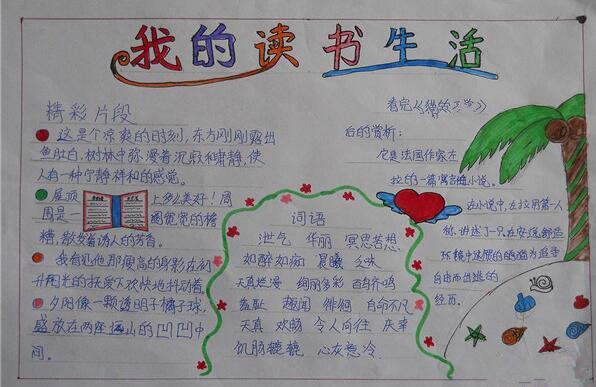 我的读书生活
精彩片段
这是个凉爽的时刻,东方刚刚露出
鱼肚白,树林中弥漫着沉寂和肃静,使
人有一种宁静祥和的感觉。
屋顶上多么美好!周
围是一圈宽宽的
糟,散发着诱人的芳香。
我看见他那瘦高的身影在初
升阳光的抚爱下欢快地抖动着
夕阳像一颗透明子橘子球,
盛放在两座远山的凹凹中
间。
词语
泄气 华丽 冥思苦想
如醉如痴 晨曦 乏味
天真烂漫 绚丽多彩 百鸟齐鸣
羞耻 趣闻 徘徊 自命不凡
天真 欢畅 令人向往 庆幸
饥肠辘辘 心灰意冷
看完《猫的
后的赏析:
它是法国作家左
拉的一篇寓言性小说。
在小说中,左拉用第一人
称,讲述了一只在安逸舒适
环境中迷惯的
自由而出逃的
经历。